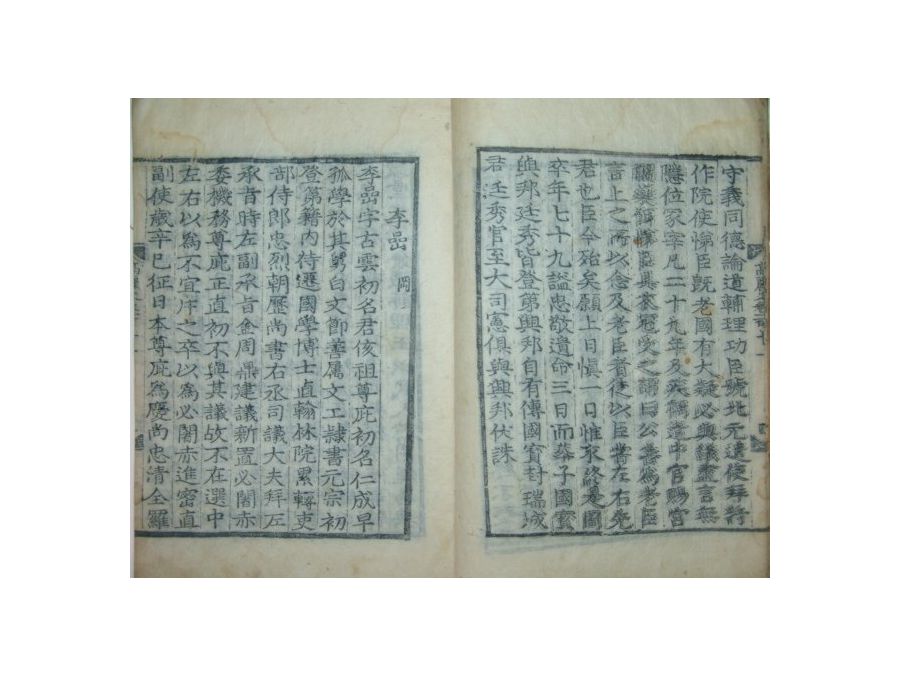 守義同德論道輔理功臣號北元遣使拜行
作院使悌臣旣老國有大疑必與議盡言無
隱位冢宰凡二十九年及疾禑遣中官賜宮
醞藥餌悌臣具衣冠受之謂曰公善爲老臣
言上之所以念及老臣者徒以臣嘗在左右先
君也臣今殆矣願上日愼一日惟永終是圖
卒年七十九謚忠敬遺命三日而葬子國寶
興邦廷秀皆登第興邦自有傳國寶封瑞城
君廷秀官至大司憲俱與興邦伏誅
李嵒 岡
李嵒字古雲初名君侅祖尊庇初名仁成早
孤學於其舅白文節善屬文工隸書元宗初
登第籍內侍遷國學博士直翰林院累轉吏
部侍郎忠烈朝歷尚書右丞司議大夫拜左
承旨時左副承旨金周鼎建議新置必闍赤
委機務尊庇正直初不與其議故不在選中
左右以爲不宜斥之卒以爲必闍赤進密直
副使歲辛巳征日本尊庇爲慶尚忠清全羅